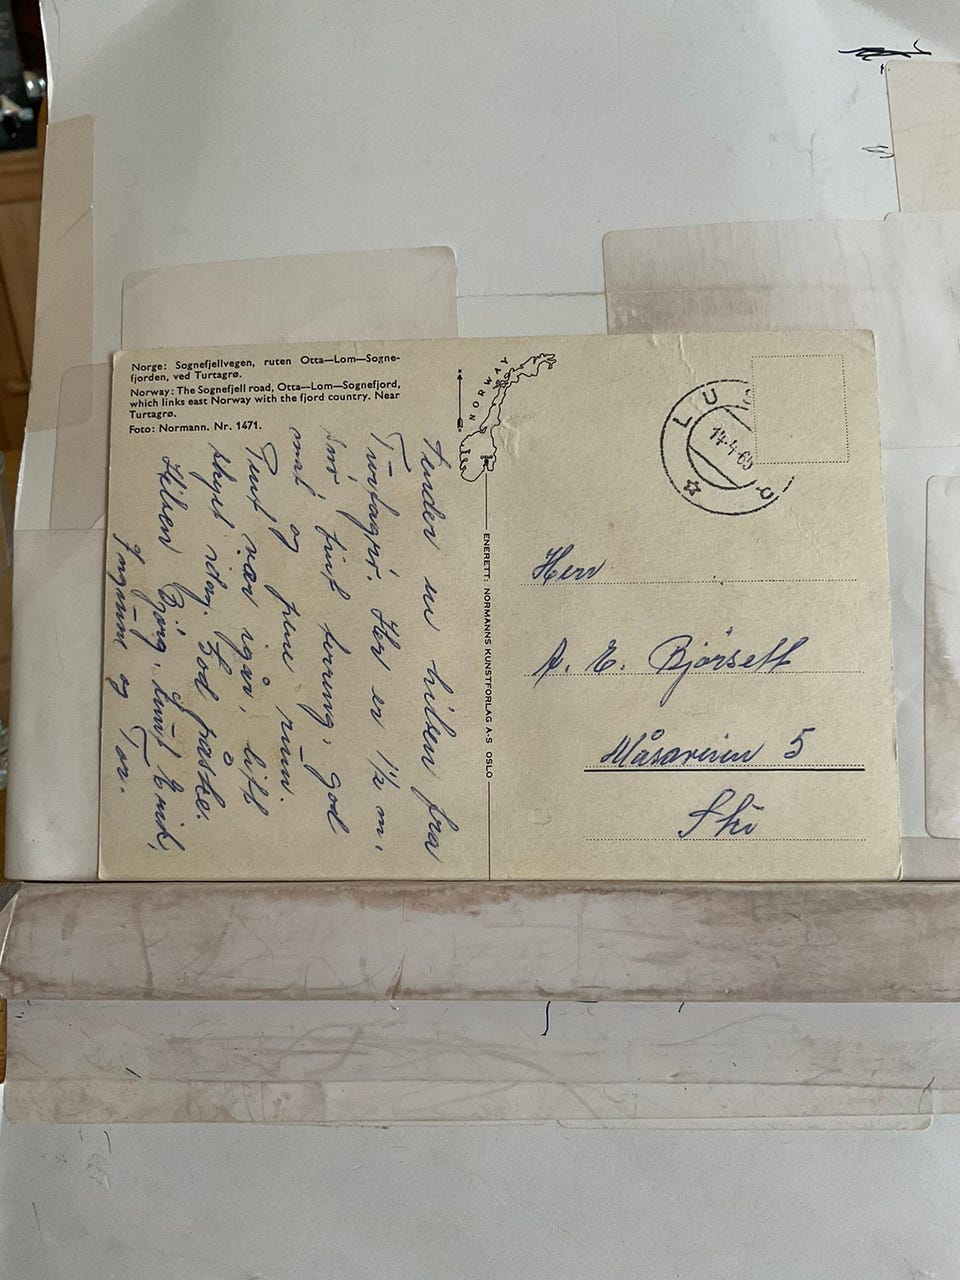 Norge: Sognefjellvegen, ruten Otta—Lom—Sogne-
fjorden, ved Turtagrø.
Norway: The Sognefjell road, Otta—Lom—Sognefjord,
which links east Norway with the fjord country. Near
Turtagrø.
Foto: Normann. Nr. 1471.
Sender en hilsen fra
Turtagrø. Her er 1½ m.
snø, fint terreng, god
mat og pene rum.
Pent vær igår, litt
skyet idag. God påske.
Hilsen Bjørg, Knut Erik,
Ingunn og Tor.
NORWAY
ENERETT: NORMANNS KUNSTFORLAG A·S OSLO
LUS
14-4-65
Herr
A. E. Bjørsett
Måsaveien 5
Ski